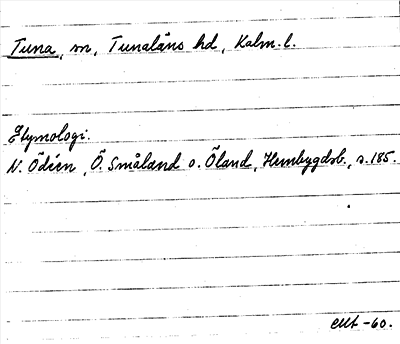 Tuna, sn, Tunaläns hd, Kalm. l.
Etymologi.
N. Ödéen, Ö. Småland o. Öland, Hembygdsb., s. 185.
-60.